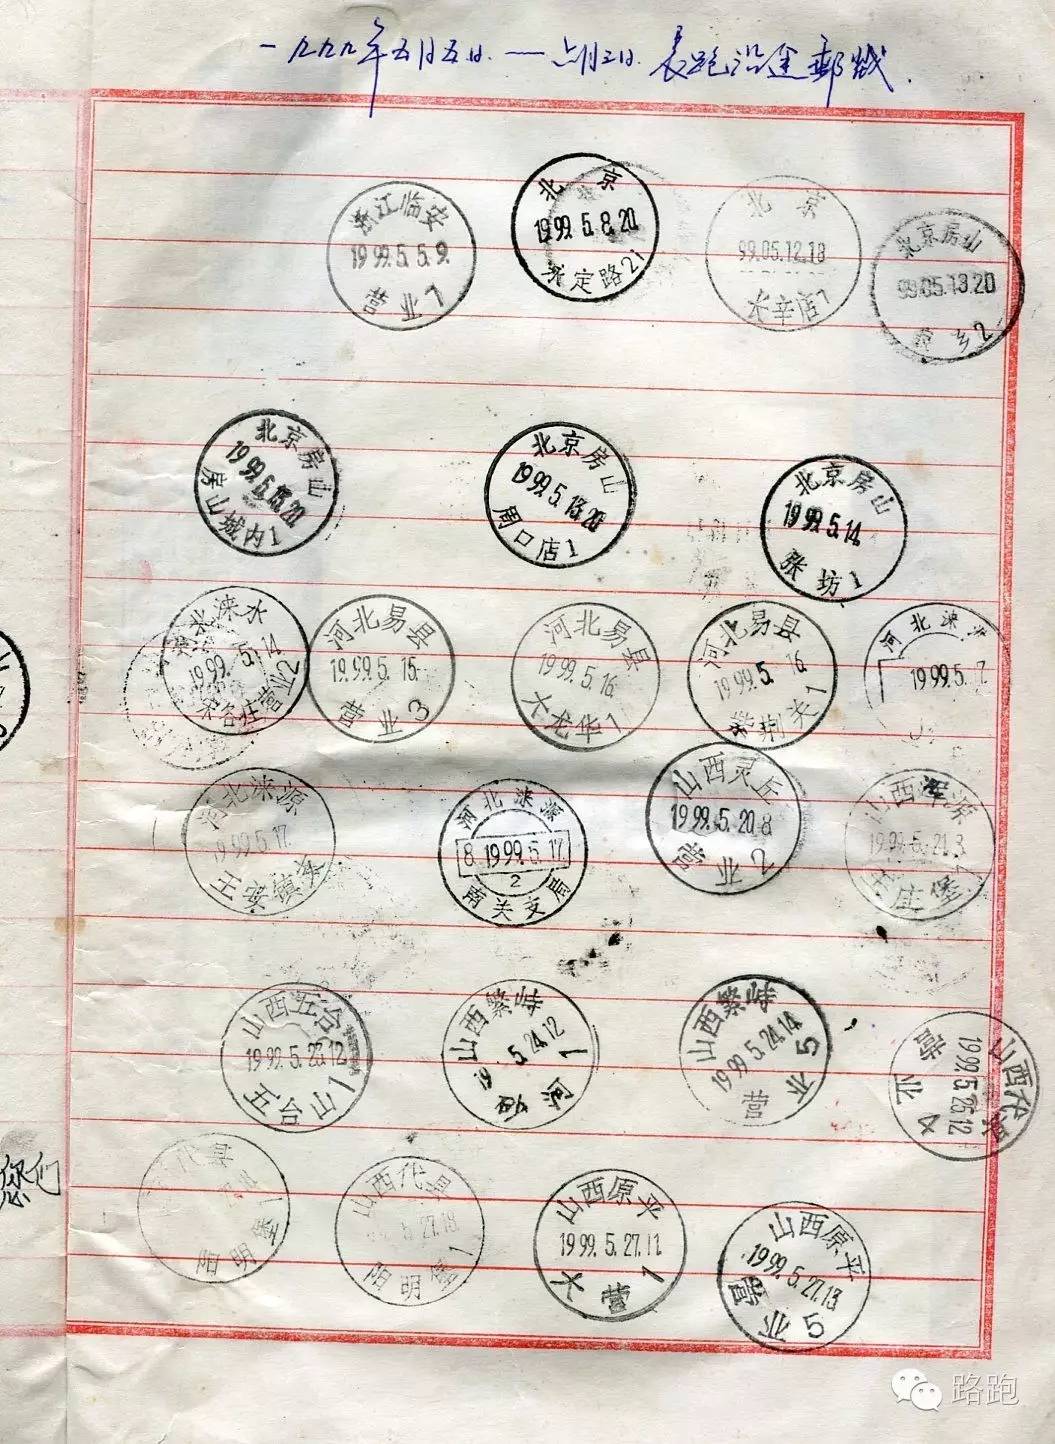 一九九九年五月五日——六月三日 长跑沿途邮戳
浙江临安
1999.5.5.9.
营业7
北京
1999.5.8.20.
永定路21
北京
99.05.12.18
长辛店7
北京房山
99.05.13.20
乡2
北京房山
1999.5.13.20.
房山城内1
北京房山
1999.5.13.20
周口店1
北京房山
1999.5.14.
张坊1
河北涞水
1999.5.14.
营业2
河北易县
1999.5.15.
营业3
河北易县
1999.5.16.
大龙华1
河北易县
1999.5.16.
紫荆关1
河北涞
1999.5.17.
河北涞源
1999.5.17.
王安镇
河北涞源
8.1999.5.17.
2
南关支局
山西灵丘
1999.5.20.8.
营业2
山西浑源
1999.5.21.3.
王庄堡
山西五台
1999.5.23.12.
五台山1
山西繁峙
5.24.12
河1
山西繁峙
1999.5.24.14.
营业5
山西代县
1999.5.26.12
营业4
代县
阳明堡1
山西代县
5.27.18.
阳明堡1
山西原平
1999.5.27.11.
大营1
山西原平
1999.5.27.13.
营业5
您们
路跑